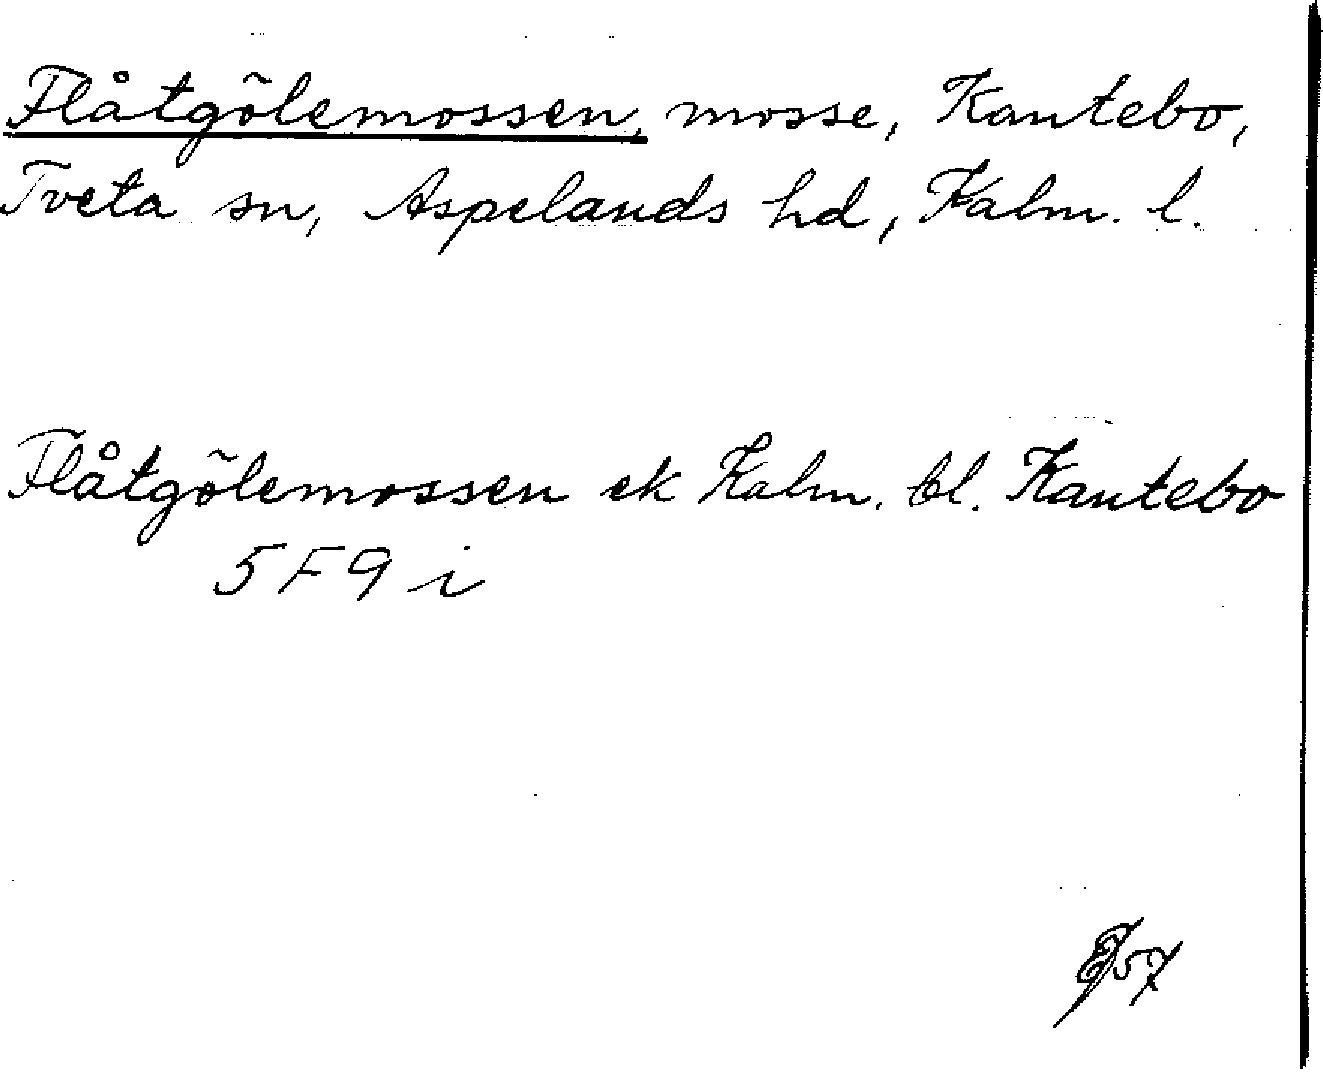 Flåtgölemossen, mosse, Kantebo,
Tveta sn, Aspelands hd, Kalm. l.
Flåtgölemossen ek Kalm. bl. Kantebo
5F9i
57